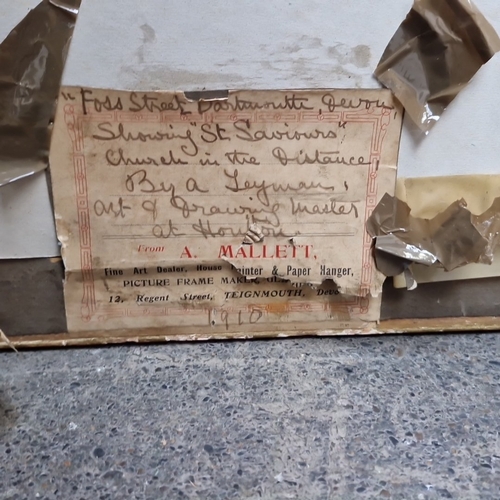 "Foss Street, Dartmouth, Devon,
Showing "St. Saviours"
Church in the Distance,
By A Leyman,
Art & Drawing Master
at Honiton.
From A. MALLETT,
Fine Art Dealer, House Painter & Paper Hanger,
PICTURE FRAME MAKER,
12, Regent Street, TEIGNMOUTH, Devon
1910